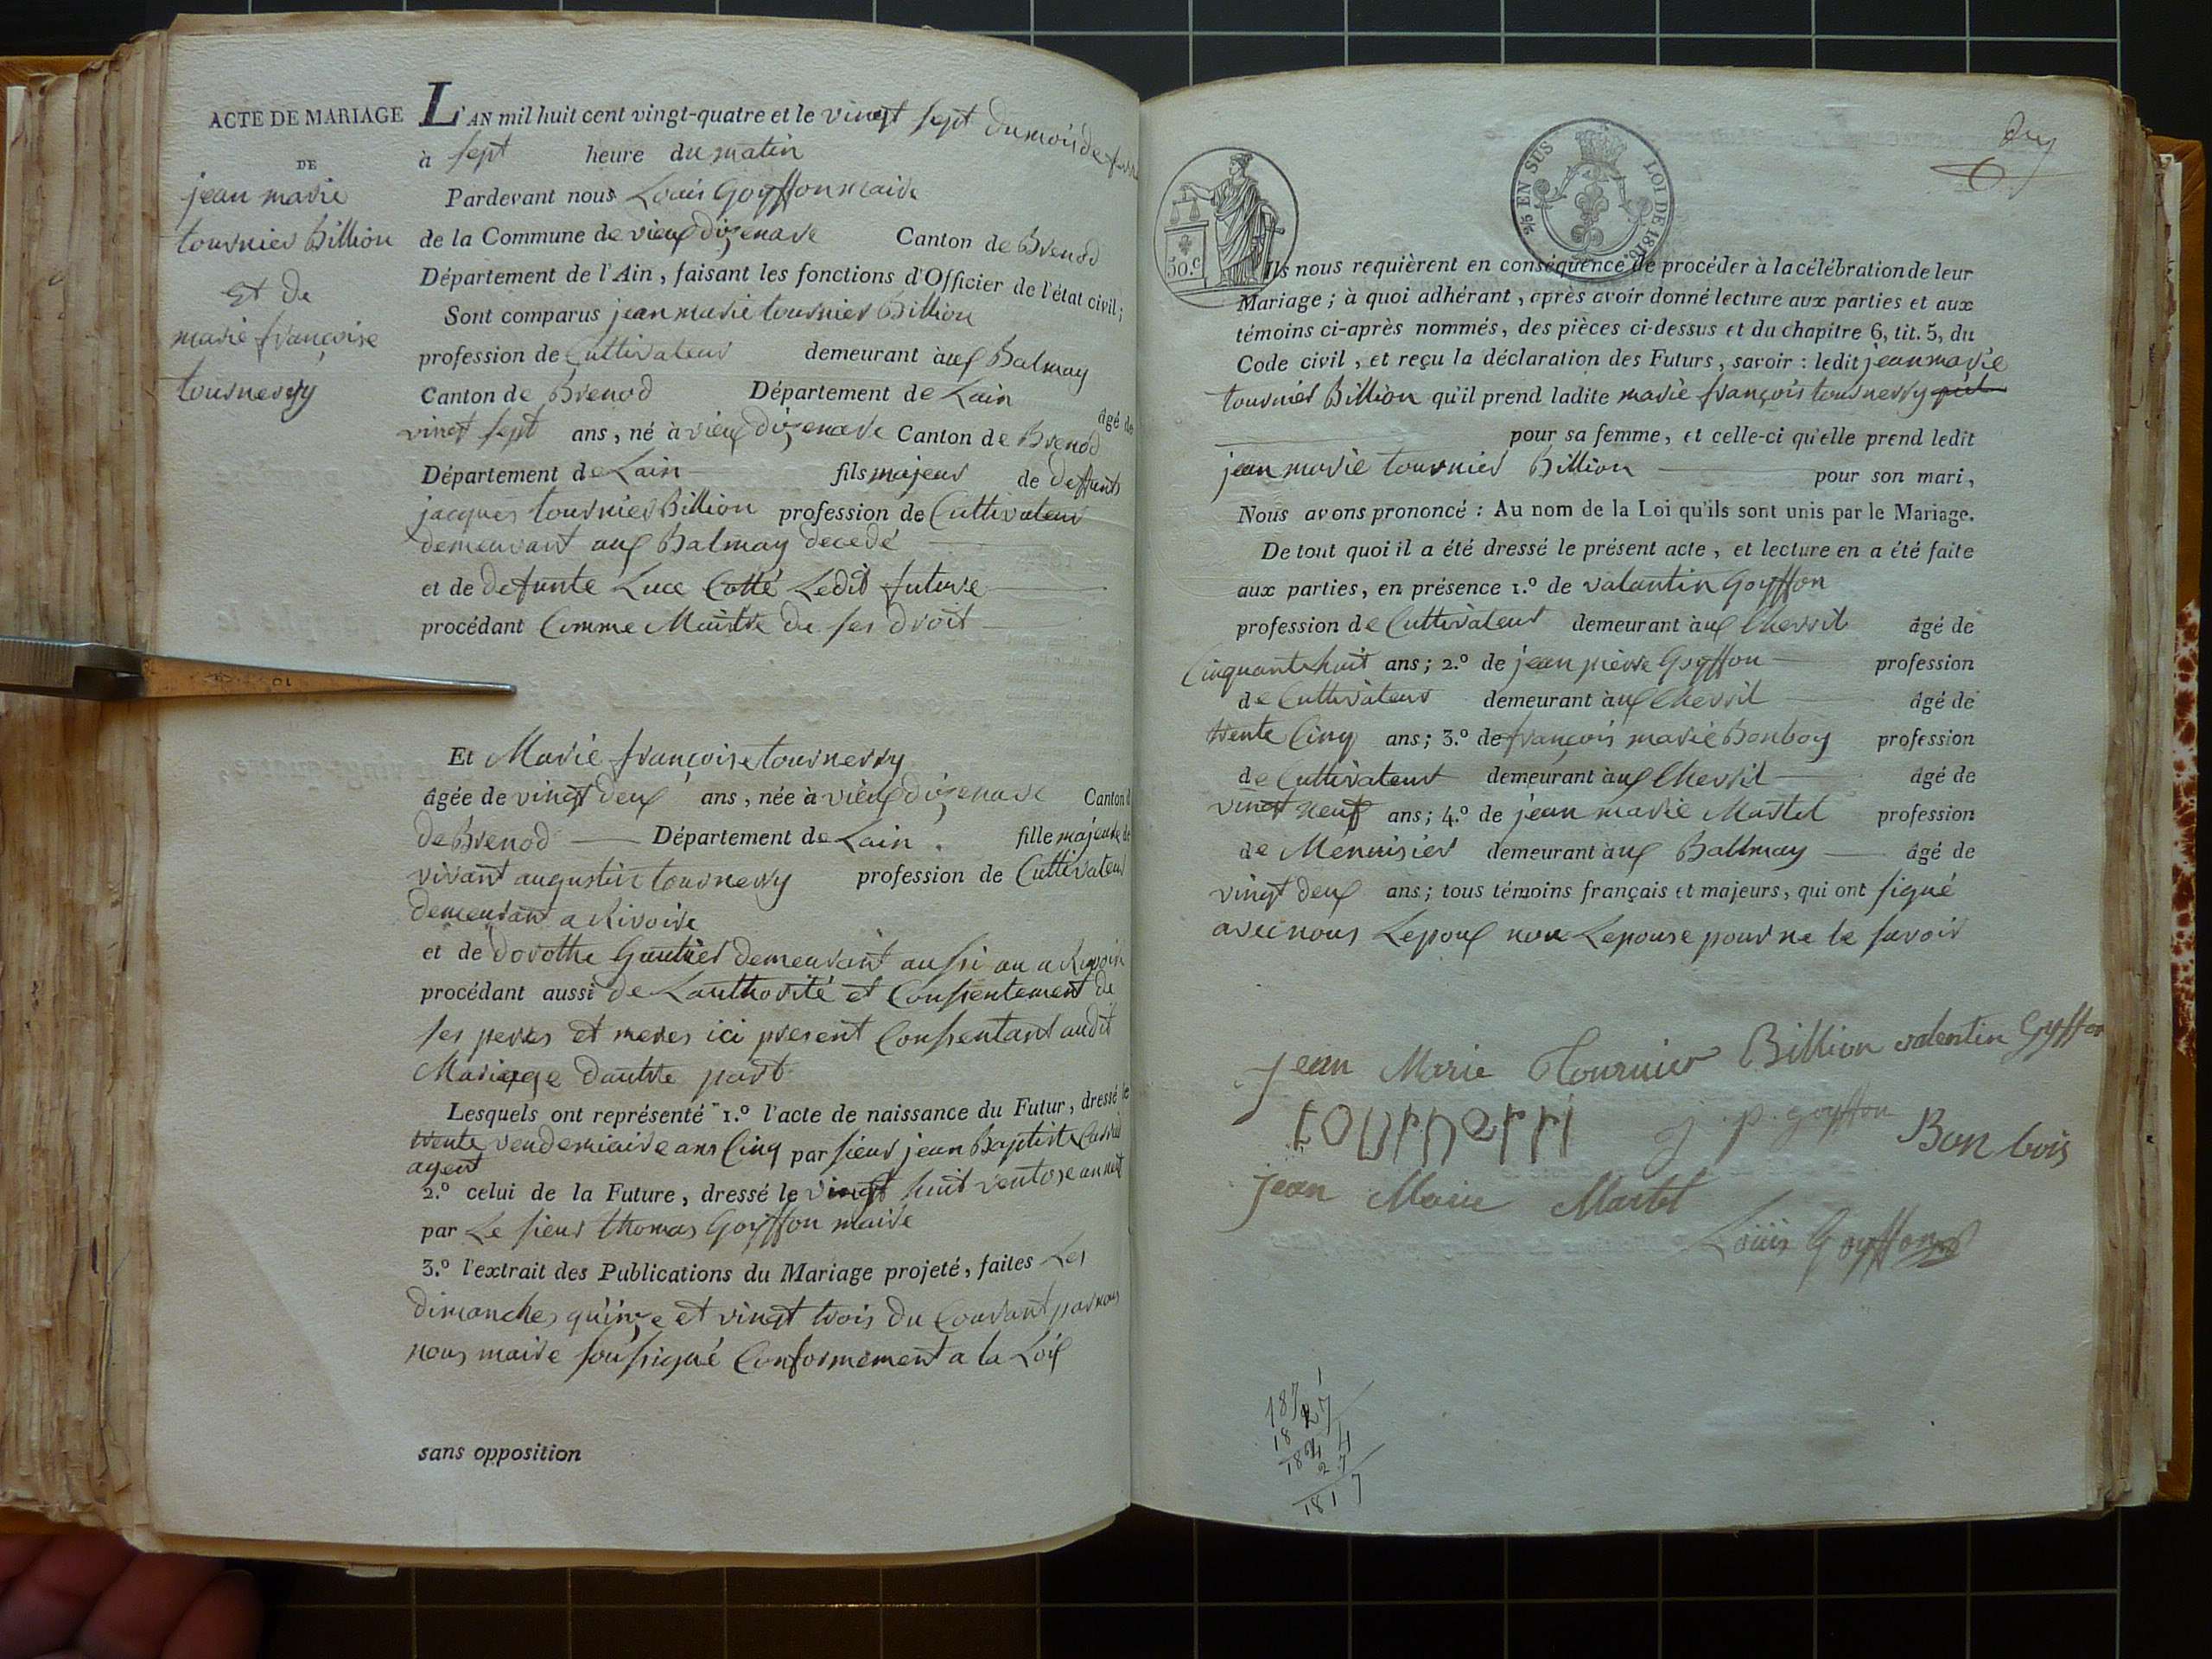 ACTE DE MARIAGE
DE
jean marie
tournier Billion
et de
marie françoise
tournerry
L'AN mil huit cent vingt-quatre et le vingt sept du mois de
à sept heure du matin
Pardevant nous Louis Goyffon maire
de la Commune de vieux dizenave Canton de Brenod
Département de l'Ain, faisant les fonctions d'Officier de l'état civil;
Sont comparus jean marie tournier Billion
profession de Cultivateur demeurant àux Balmay
Canton de Brenod Département de Lain âgé de
vingt sept ans, né à vieux dizenave Canton de Brenod
Département de Lain fils majeur de deffunts
jacques tournier Billion profession de Cultivateur
demeurant aux Balmay decedé
et de defunte Luce Cotté Ledit future
procédant Comme Maitre de ses droit
Et Marie françoise tournerry
âgée de vingt deux ans, née à vieux dizenave Canton d
de Brenod Département de Lain. fille majeure de
vivant augustin tournerry profession de Cultivateur
demeurant a Rivoire
et de dorothe Gautier demeurant aussi au a Rivoire
procédant aussi de Lauthorité et Consentement de
ses peres et meres ici present Consentant audit
Mariage dautre part
Lesquels ont représenté 1.º l'acte de naissance du Futur, dressé le
trente vendemiaire ans Cinq par sieur jean Baptiste
agent
2.º celui de la Future, dressé le vingt huit ventose an neuf
par Le sieur thomas Goyffon maire
3.º l'extrait des Publications du Mariage projeté, faites Les
dimanches quinze et vingt trois du Courant par nous
nous maire soussigné Conformement a la Loix
sans opposition
50.c
2/5 EN SUS LOI DE 1816.
Ils nous requièrent en conséquence de procéder à la célébration de leur
Mariage; à quoi adhérant, après avoir donné lecture aux parties et aux
témoins ci-après nommés, des pièces ci-dessus et du chapitre 6, tit. 5, du
Code civil, et reçu la déclaration des Futurs, savoir: ledit jean marie
tournier Billion qu'il prend ladite marie françois tournerry
pour sa femme, et celle-ci qu'elle prend ledit
jean marie tournier Billion pour son mari,
Nous avons prononcé: Au nom de la Loi qu'ils sont unis par le Mariage.
De tout quoi il a été dressé le présent acte, et lecture en a été faite
aux parties, en présence 1.º de valantin Goyffon
profession de Cultivateur demeurant àux Chevril âgé de
Cinquante huit ans; 2.º de jean pierre Goyffon profession
de Cultivateur demeurant àux Chevril âgé de
trente Cinq ans; 3.º de françois marie Bonboy profession
de Cultivateur demeurant àux Chevril âgé de
vingt neuf ans; 4.º de jean marie Martel profession
de Menuisier demeurant àux Ballmay âgé de
vingt deux ans; tous témoins français et majeurs, qui ont signé
avec nous Lepoux non Lepouse pour ne le savoir
jean Marie Tournier Billion valentin Gyffon
tournerri j. p. goyffon Bon bois
jean Marie Martel
Loüis Goyffon
1817